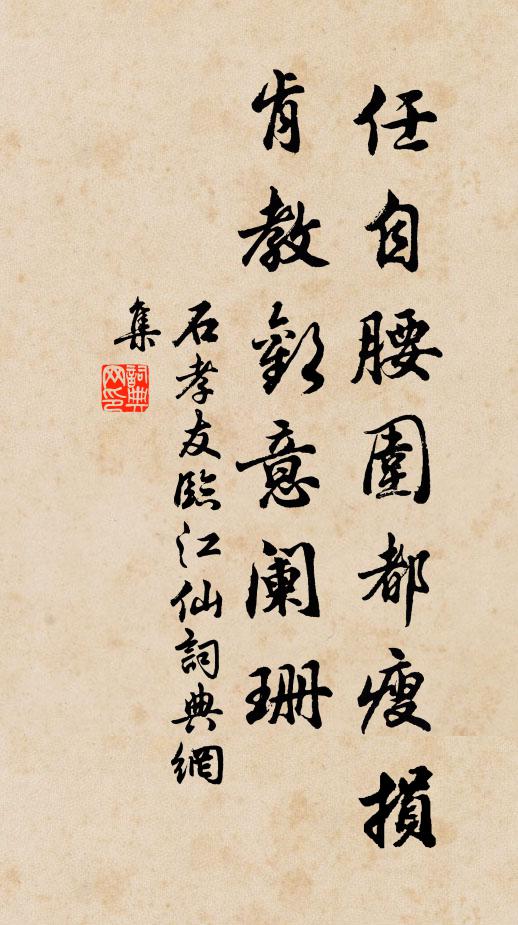 任自腰圍都瘦損
肯教歡意阑珊
石孝友臨江仙詞典網
集
詞典
网印